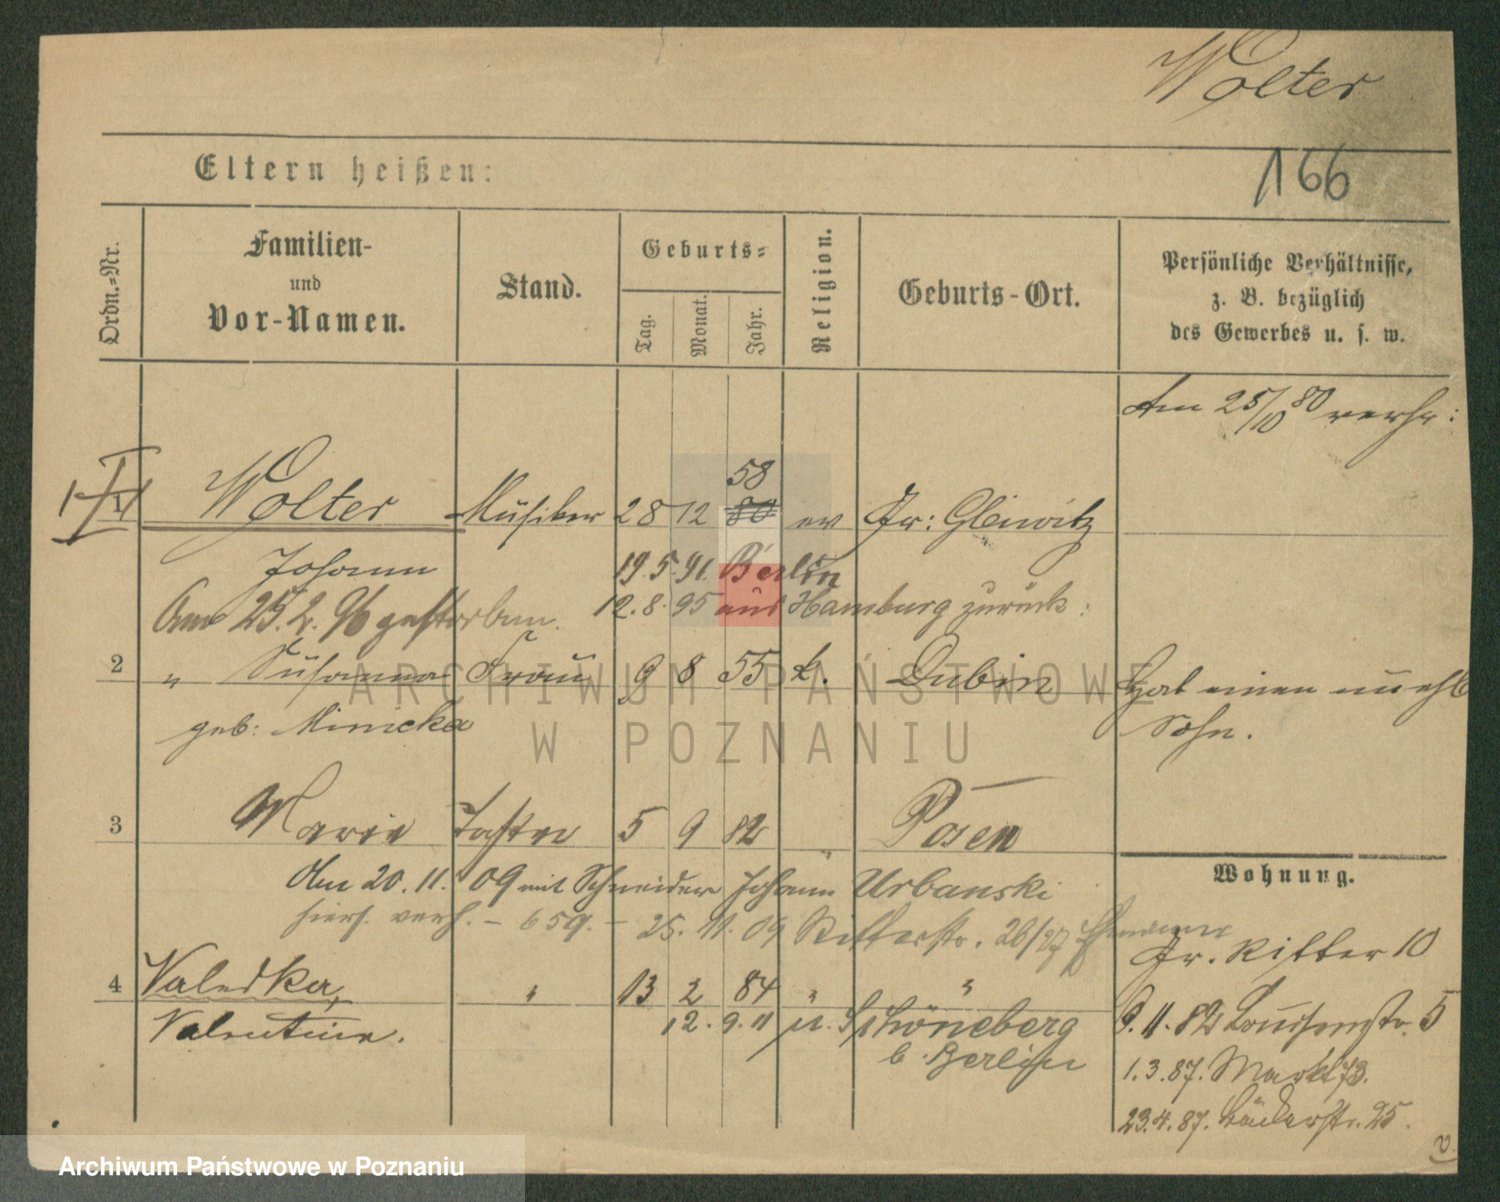 Wolter
Eltern heißen:
166
Ordn.-Nr.
Familien-
und
Vor-Namen.
Stand.
Geburts-
Tag.
Monat.
Jahr.
Religion.
Geburts-Ort.
Persönliche Verhältnisse,
z. B. bezüglich
des Gewerbes u. s. w.
Am 25/10 80 verh:
58
1 Wolter Musiker 28 12 80 ev Gr: Gleiwitz
Johann 19.5.91. Berlin
Am 25.2.96 gestorben. 12.8.95 aus Hamburg zurück:
2 " Susanna Frau 9 8 55 k. Dubin Hat einen unehl
geb: Minicka Sohn.
3 Marie Tochter 5 9 82 " Posen
Wohnung.
Am 20.11.09 mit Schneider Johann Urbanski
hiers. verh. - 659. - 25.11.09 Ritterstr. 26/27 Ehemann
Gr. Ritter 10
4 Valeska, " 13 2 84 " "
Valentine. 12.9.11 n. Schöneberg 9.11.82 Louisenstr. 5
b. Berlin
1.3.87. Markt 73.
23.4.87. Bäckerstr. 25.
v.
ARCHIWUM PAŃSTWOWE
W POZNANIU
Archiwum Państwowe w Poznaniu